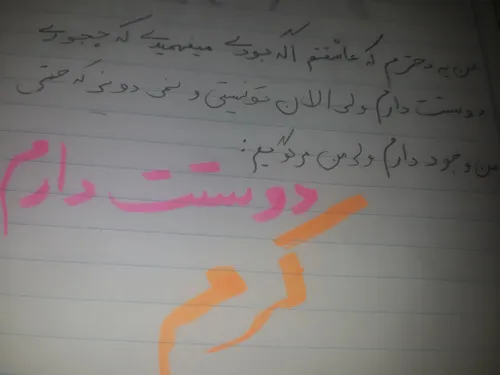 من یه دخترم که عاشقتم اگه بودی میفهمیدی که چجوری
دوست دارم ولی الان تونیستی و نمی دونی که حتی
من وجود دارم ولی من میگویم:
دوستت دارم
کرم